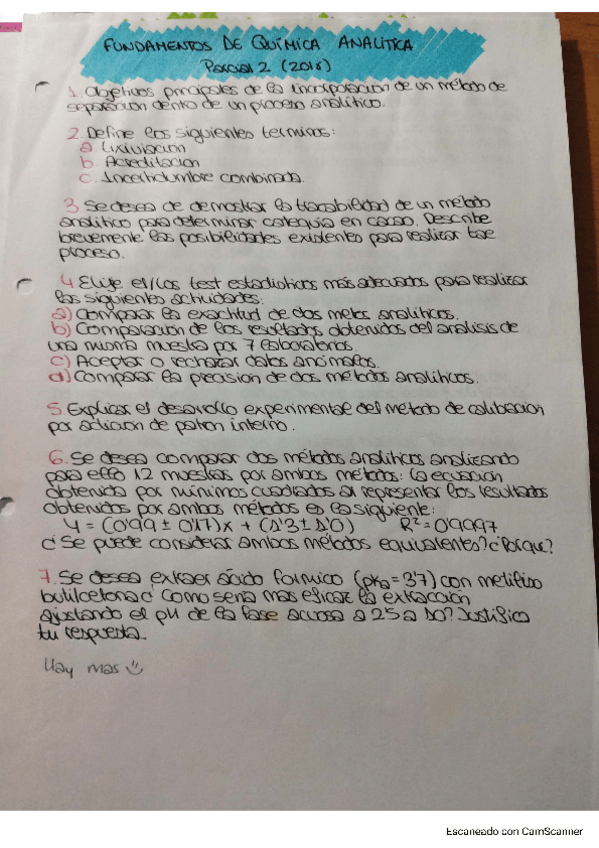 FUNDAMENTOS DE QUÍMICA ANALÍTICA
Parcial 2 (2018)
1. Objetivos principales de la incorporación de un método de
separación dentro de un proceso analítico.
2. Define los siguientes terminos:
a. Lixiviación
b. Acreditación
c. Incertidumbre combinada.
3. Se desea de demostrar la trazabilidad de un método
analítico para determinar catequia en cacao. Describe
brevemente las posibilidades existentes para realizar tae
proceso.
4. Elije el/los test estadísticos más adecuados para realizar
las siguientes actividades:
a) Comparar la exactitud de dos metos analíticos.
b) Comparación de los resultados obtenidos del analisis de
una misma muestra por 7 laboratorios.
c) Aceptar o rechazar datos anómalos.
d) Comparar la precision de dos métodos analíticos.
5. Explicar el desarrollo experimental del método de calibración
por adición de patron interno.
6. Se desea comparar dos métodos analíticos analizando
para ello 12 muestras por ambos métodos: la ecuación
obtenida por mínimos cuadrados al representar los resultados
obtenidos por ambos métodos es la siguiente:
Y = (0'99 ± 0'17)x + (1'3 ± 1'0) R² = 0'9997
¿Se puede considerar ambos métodos equivalentes? ¿Porque?
7. Se desea extraer ácido formico (pka = 3'7) con metiliso
butilcetona ¿Como seria mas eficaz la extracción
ajustando el pH de la fase acuosa a 2'5 a 10? Justifica
tu respuesta.
Hay mas
Escaneado con CamScanner